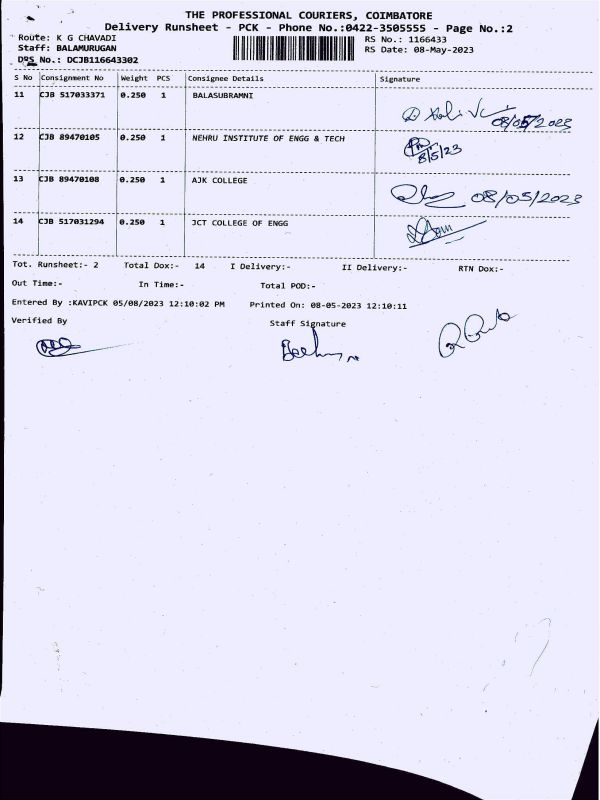 THE PROFESSIONAL COURIERS, COIMBATORE
Delivery Runsheet - PCK - Phone No.:0422-3505555 - Page No.:2
Route: K G CHAVADI RS No.: 1166433
Staff: BALAMURUGAN RS Date: 08-May-2023
DRS No.: DCJB116643302
S No Consignment No Weight PCS Consignee Details Signature
11 CJB 517033371 0.250 1 BALASUBRAMNI
08/05/2023
12 CJB 89470105 0.250 1 NEHRU INSTITUTE OF ENGG & TECH
8/5/23
13 CJB 89470108 0.250 1 AJK COLLEGE
08/05/2023
14 CJB 517031294 0.250 1 JCT COLLEGE OF ENGG
Tot. Runsheet:- 2 Total Dox:- 14 I Delivery:- II Delivery:- RTN Dox:-
Out Time:- In Time:- Total POD:-
Entered By :KAVIPCK 05/08/2023 12:10:02 PM Printed On: 08-05-2023 12:10:11
Verified By Staff Signature